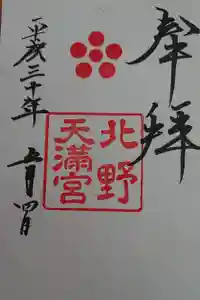 奉拝
北野
天満宮
平成三十年
五月四日